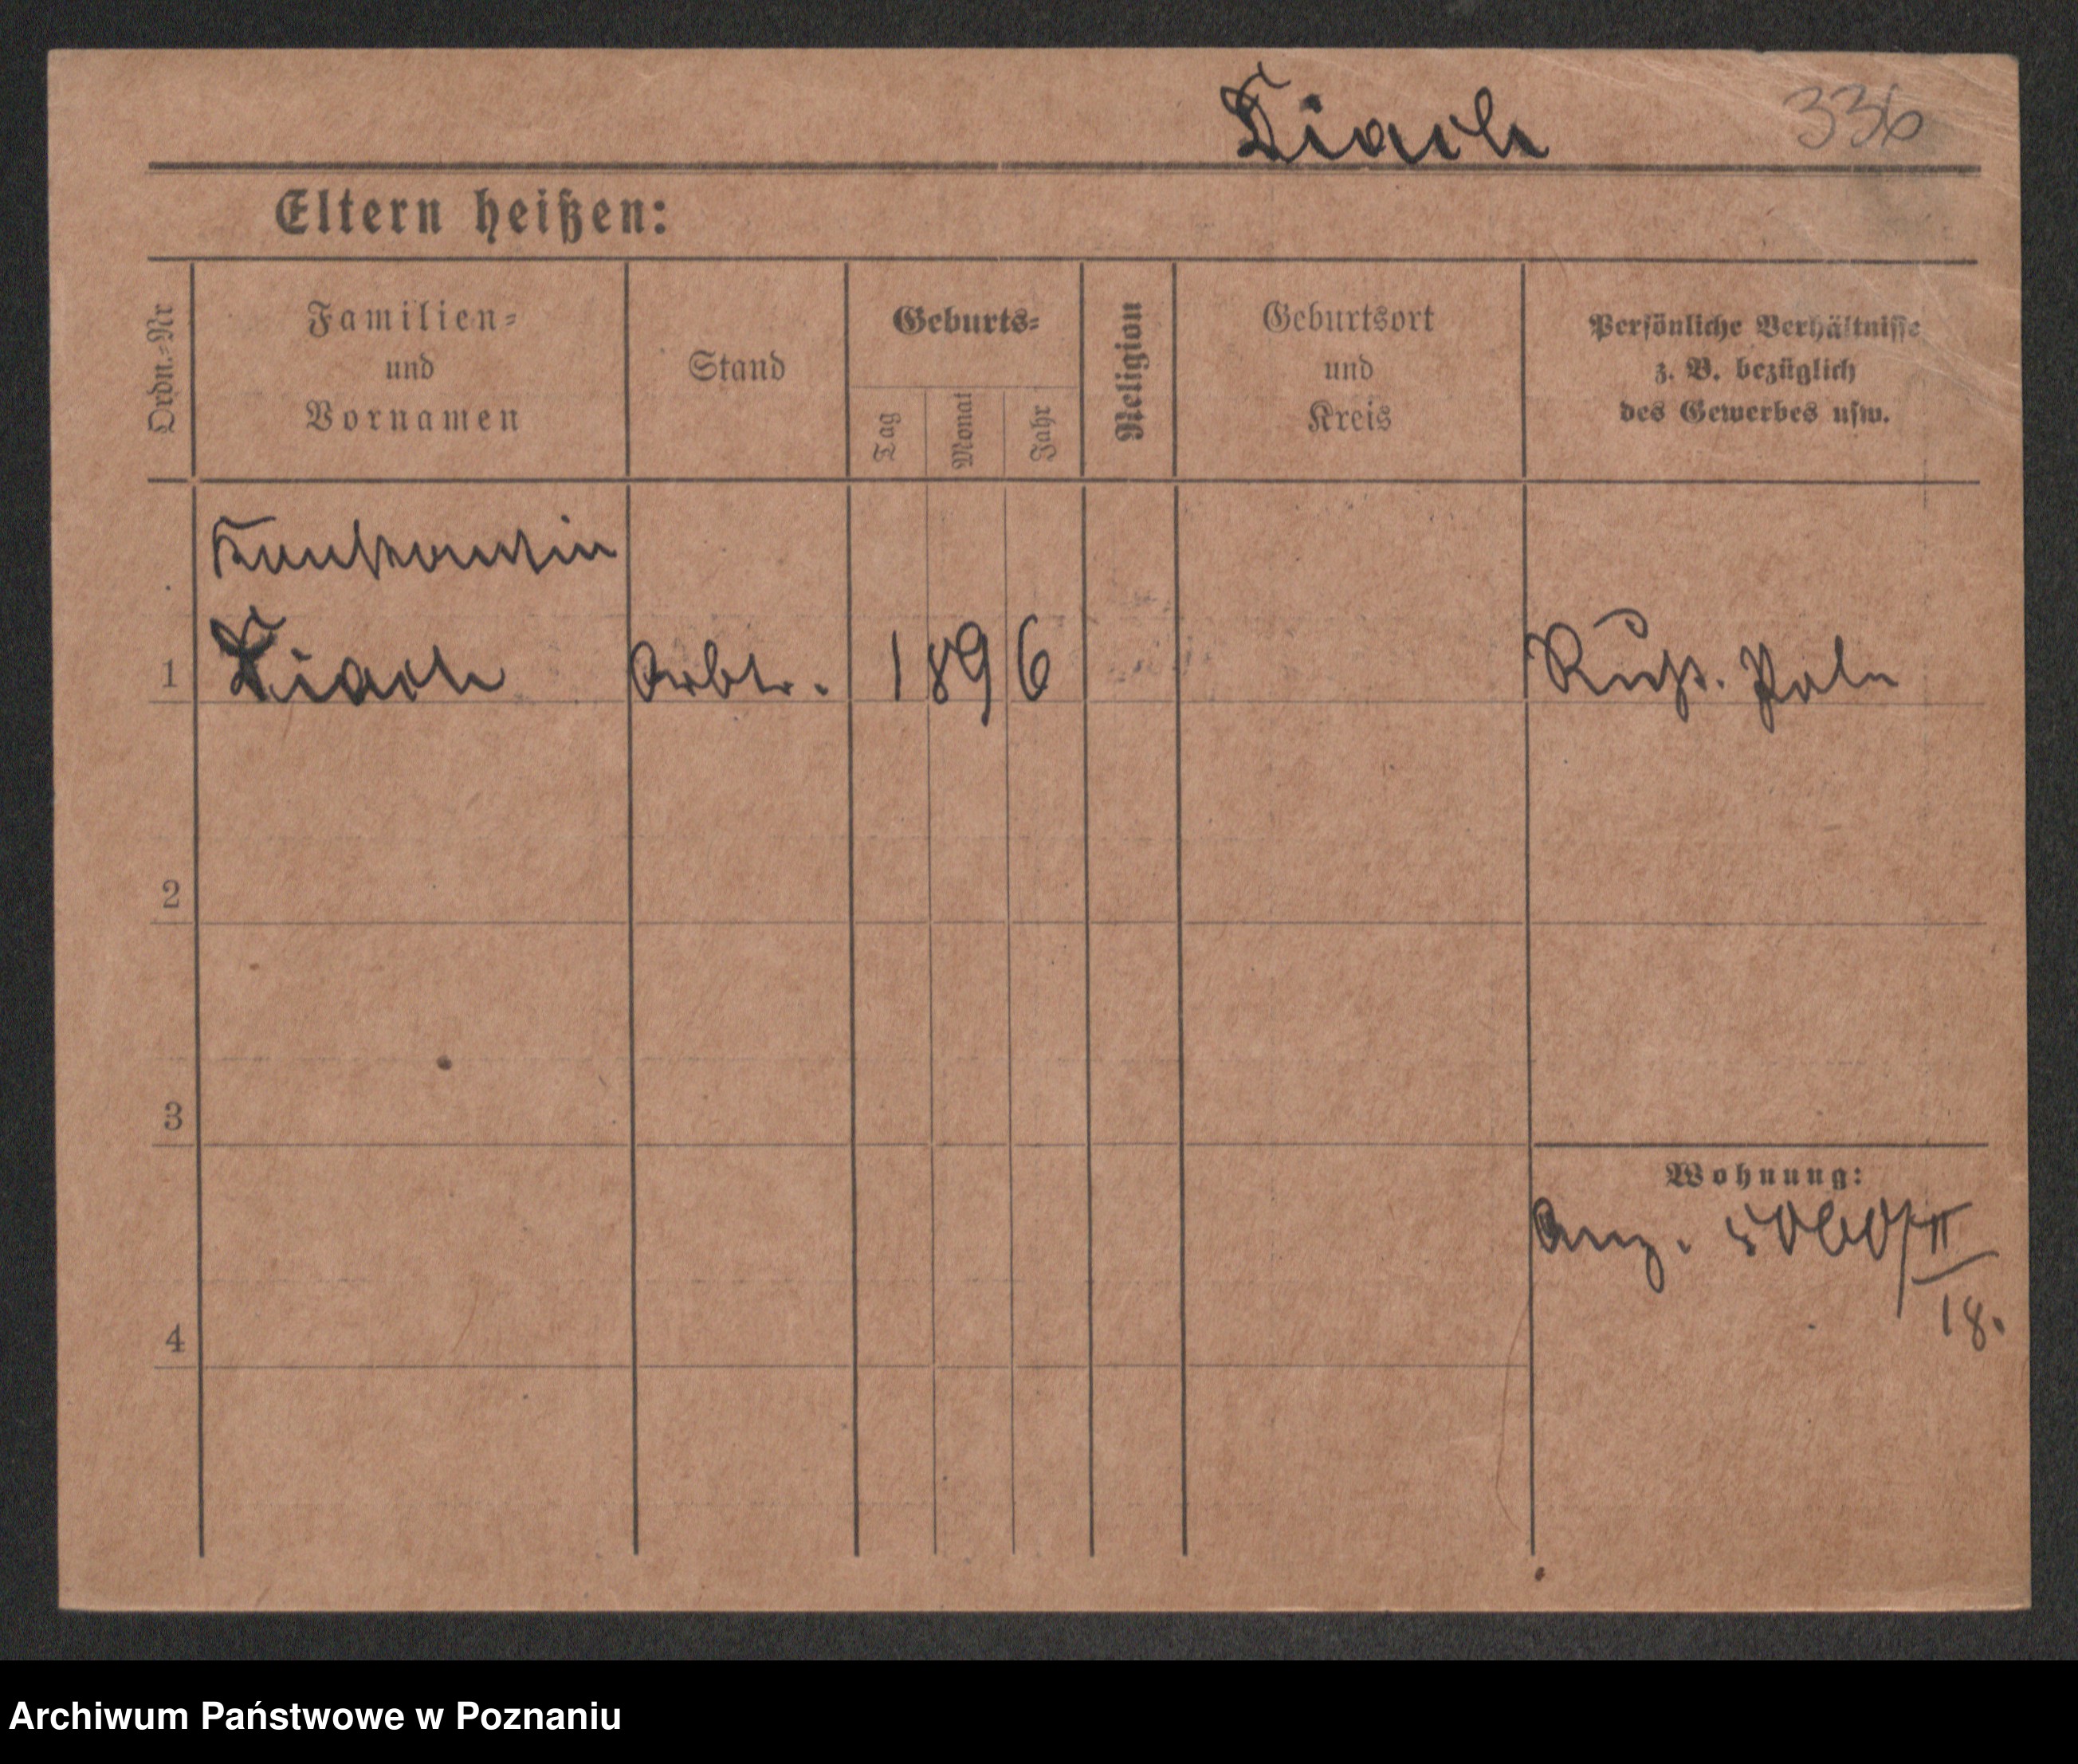 336
Eltern heißen:
Ordn.-Nr
Familien-
und
Vornamen
Stand
Geburts-
Tag
Monat
Jahr
Religion
Geburtsort
und
Kreis
Persönliche Verhältnisse
z. B. bezüglich
des Gewerbes usw.
Konstantin
1 Arbtr. 1896 Russ. Pole
2
3
Wohnung:
Anz. 5060/II
18.
4
Archiwum Państwowe w Poznaniu